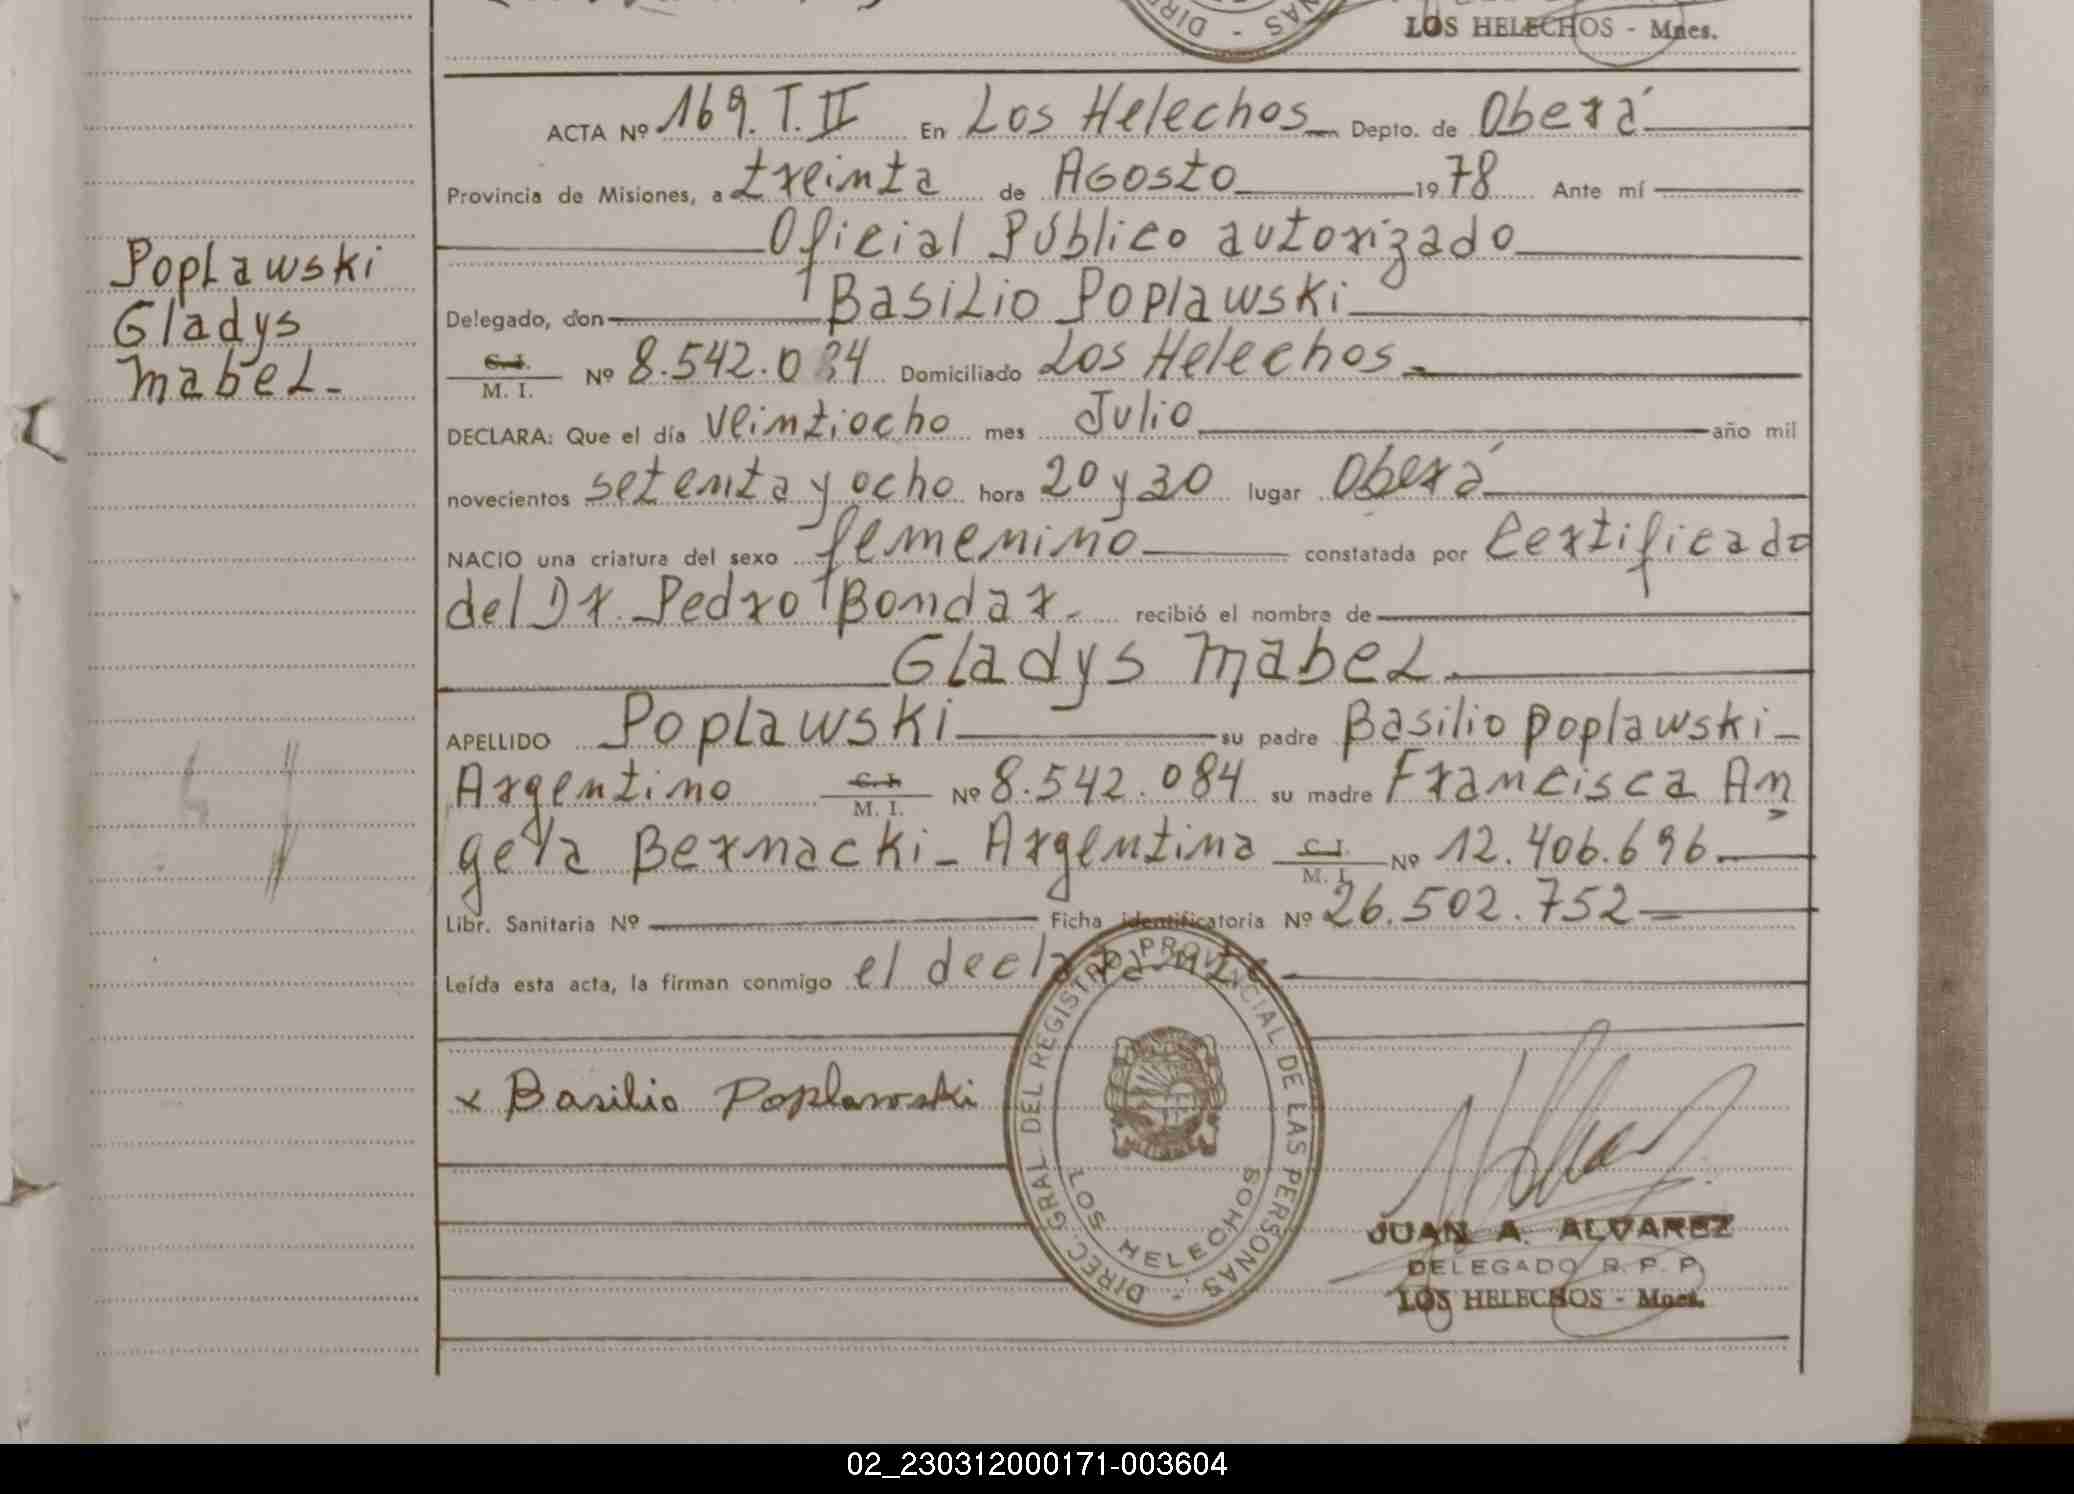 DIREC
NAS
LOS HELECHOS - Mnes.
ACTA Nº 169. T. II En Los Helechos Depto. de Oberá
Provincia de Misiones, a treinta de Agosto 1978 Ante mí
Oficial Público autorizado
Poplawski
Gladys
Mabel
Delegado, don Basilio Poplawski
C. I.
M. I. Nº 8.542.084 Domiciliado Los Helechos.
DECLARA: Que el día veintiocho mes Julio año mil
novecientos setenta y ocho hora 20 y 30 lugar Oberá
NACIO una criatura del sexo femenino constatada por Certificado
del Dr. Pedro Bondar. recibió el nombre de
Gladys Mabel.
APELLIDO Poplawski su padre Basilio Poplawski-
Argentino C. I.
M. I. Nº 8.542.084 su madre Francisca An
gela Bernacki- Argentina C. I.
M. I. Nº 12.406.696
Libr. Sanitaria Nº Ficha identificatoria Nº 26.502.752
Leída esta acta, la firman conmigo el declarante
x Basilio Poplawski
DIREC. GRAL. DEL REGISTRO PROVINCIAL DE LAS PERSONAS
LOS HELECHOS
JUAN A. ALVAREZ
DELEGADO R. P. P.
LOS HELECHOS - Mnes.
02_230312000171-003604